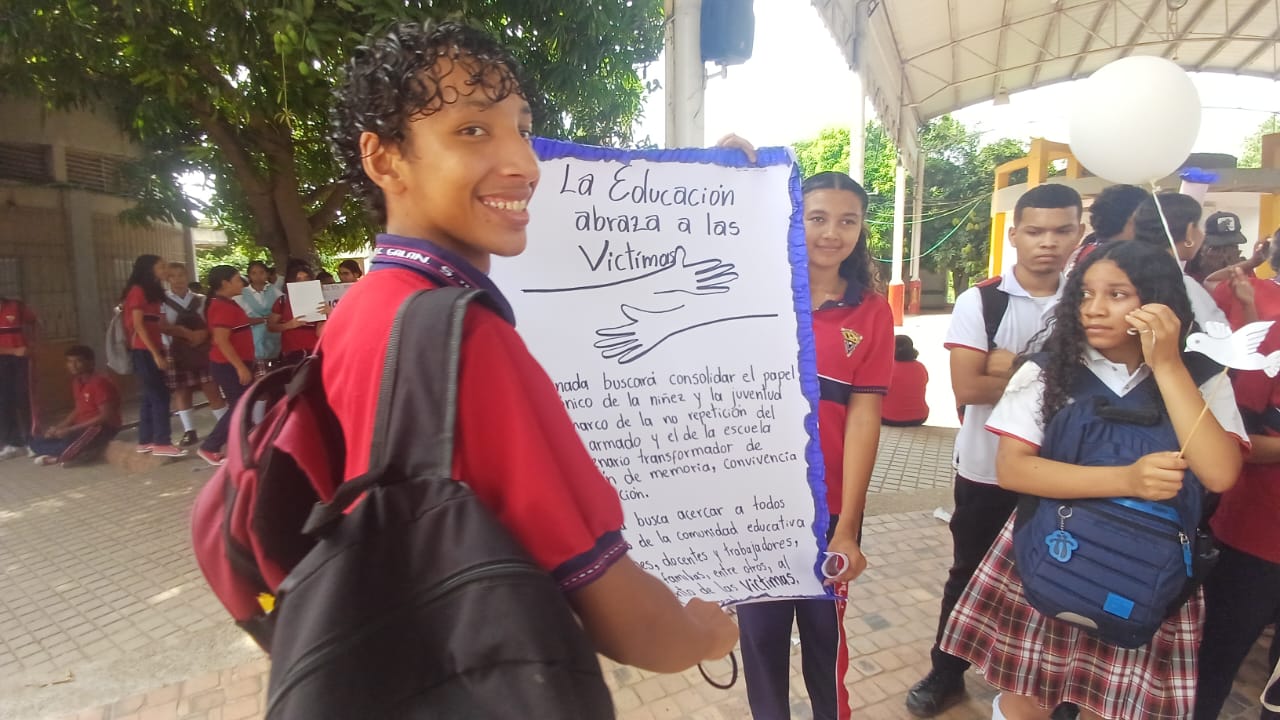 La Educación
abraza a las
Víctimas
nada buscará consolidar el papel
nico de la niñez y la juventud
marco de la no repetición del
armado y el de la escuela
enario transformador de
n de memoria, convivencia
ción.
busca acercar a todos
de la comunidad educativa
es, docentes y trabajadores,
familias, entre otros, al
nto de las Víctimas,
GALÁN